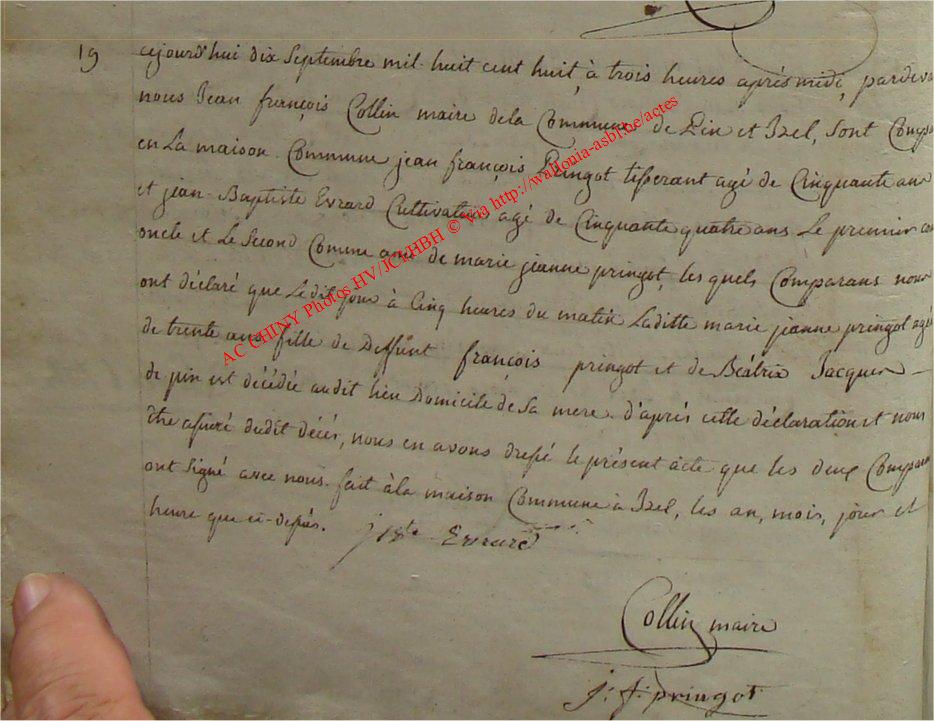 19
cejourd'hui dix Septembre mil huit cent huit, à trois heures après midi, pardeva
nous Jean françois Collin maire dela Commune de Pin et Izel, sont Compa
en La maison Commune jean françois Pringot tisserant agé de Cinquante ans
et jean-Baptiste Evrard Cultivateur agé de Cinquante quatre ans Le premier
oncle et Le Second Comme ami de marie jeanne pringot, les quels Comparans nous
ont déclaré que Ledit jour à Cinq heures du matin Laditte marie jeanne pringot agée
de trente ans fille de Deffunt françois pringot et de Béatrix Jacques
de pin est décédée audit lieu Domicile de Sa mere. d'après cette déclaration et nous
être assuré dudit décès, nous en avons dressé le présent acte que les deux Compara
ont Signé avec nous. fait à la maison Commune à Izel, les an, mois, jour et
heure que ci-dessus. j Bte Evrard
Collin maire
j: f: pringot
AC CHINY Photos HV/JCI/HBH © via http://wallonia-asbl.be/actes